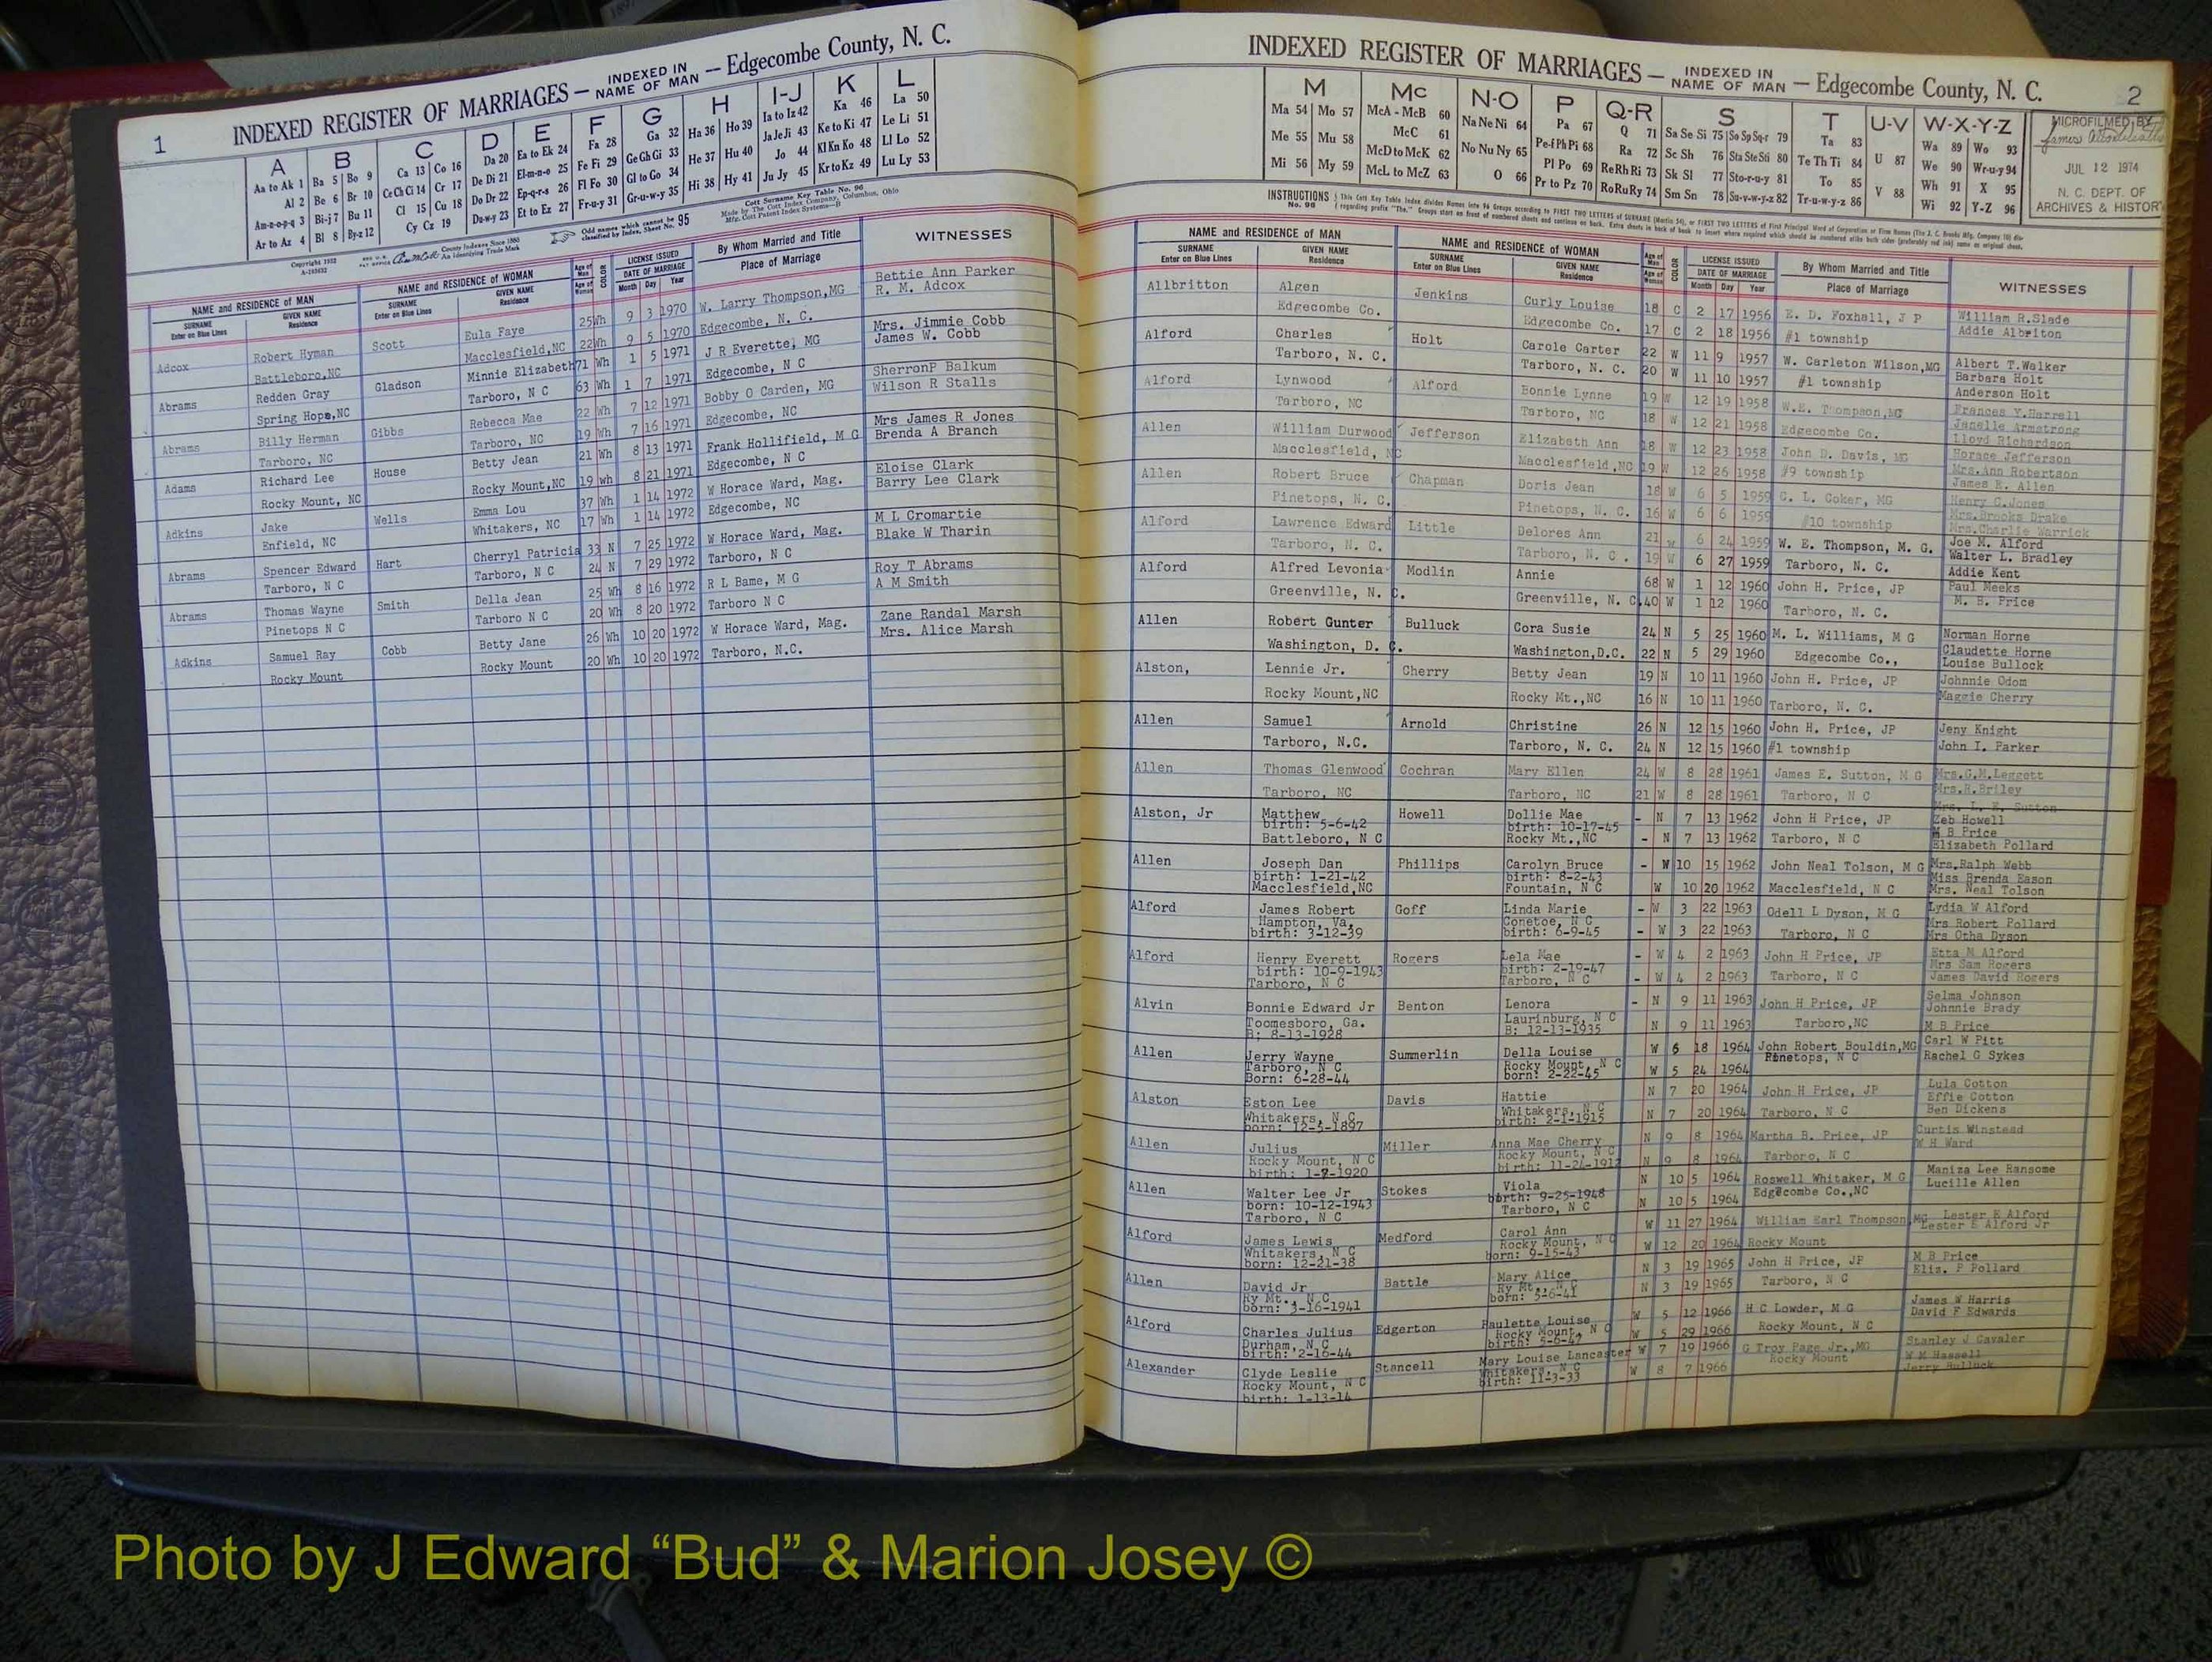 1
INDEXED REGISTER OF MARRIAGES — INDEXED IN NAME OF MAN — Edgecombe County, N. C.
A B C D E F G H I-J K L
Aa to Ak 1 Ba 5 Bo 9 Ca 13 Co 16 Da 20 Ea to Ek 24 Fa 28 Ga 32 Ha 36 Ho 39 Ia to Iz 42 Ka 46 La 50
Al 2 Be 6 Br 10 Ce Ch Ci 14 Cr 17 De Di 21 El-m-n-o 25 Fe Fi 29 Ge Gh Gi 33 He 37 Hu 40 Ja Je Ji 43 Ke to Ki 47 Le Li 51
Am-n-o-p-q 3 Bi-j 7 Bu 11 Cl 15 Cu 18 Do Dr 22 Ep-q-r-s 26 Fl Fo 30 Gl to Go 34 Hi 38 Hy 41 Jo 44 Kl Kn Ko 48 Ll Lo 52
Ar to Az 4 Bl 8 By-z 12 Cy Cz 19 Du-w-y 23 Et to Ez 27 Fr-u-y 31 Gr-u-w-y 35 Ju Jy 45 Kr to Kz 49 Lu Ly 53
Cott Surname Key Table No. 96
Made by The Cott Index Company, Columbus, Ohio
Mfg. Cott Patent Index Systems—B
Odd names which cannot be classified by Index, Sheet No. 95
Copyright 1932
A-103632
County Indexes Since 1880
An Identifying Trade Mark
NAME and RESIDENCE of MAN NAME and RESIDENCE of WOMAN Age of Man Age of Woman COLOR LICENSE ISSUED DATE OF MARRIAGE By Whom Married and Title Place of Marriage WITNESSES
SURNAME Enter on Blue Lines GIVEN NAME Residence SURNAME Enter on Blue Lines GIVEN NAME Residence Month Day Year
Adcox Robert Hyman Scott Eula Faye 25 Wh 9 3 1970 W. Larry Thompson,MG Bettie Ann Parker
Battleboro,NC Macclesfield,NC 22 Wh 9 5 1970 Edgecombe, N. C. R. M. Adcox
Abrams Redden Gray Gladson Minnie Elizabeth 71 Wh 1 5 1971 J R Everette, MG Mrs. Jimmie Cobb
Spring Hope,NC Tarboro, N C 63 Wh 1 7 1971 Edgecombe, N C James W. Cobb
Abrams Billy Herman Gibbs Rebecca Mae 22 Wh 7 12 1971 Bobby O Carden, MG SherronP Balkum
Tarboro, NC Tarboro, NC 19 Wh 7 16 1971 Edgecombe, NC Wilson R Stalls
Adams Richard Lee House Betty Jean 21 Wh 8 13 1971 Frank Hollifield, M G Mrs James R Jones
Rocky Mount, NC Rocky Mount,NC 19 wh 8 21 1971 Edgecombe, N C Brenda A Branch
Adkins Jake Wells Emma Lou 37 Wh 1 14 1972 W Horace Ward, Mag. Eloise Clark
Enfield, NC Whitakers, NC 17 Wh 1 14 1972 Edgecombe, NC Barry Lee Clark
Abrams Spencer Edward Hart Cherryl Patricia 33 N 7 25 1972 W Horace Ward, Mag. M L Cromartie
Tarboro, N C Tarboro, N C 24 N 7 29 1972 Tarboro, N C Blake W Tharin
Abrams Thomas Wayne Smith Della Jean 25 Wh 8 16 1972 R L Bame, M G Roy T Abrams
Pinetops N C Tarboro N C 20 Wh 8 20 1972 Tarboro N C A M Smith
Adkins Samuel Ray Cobb Betty Jane 26 Wh 10 20 1972 W Horace Ward, Mag. Zane Randal Marsh
Rocky Mount Rocky Mount 20 Wh 10 20 1972 Tarboro, N.C. Mrs. Alice Marsh
INDEXED REGISTER OF MARRIAGES — INDEXED IN NAME OF MAN — Edgecombe County, N. C. 2
M Mc N-O P Q-R S T U-V W-X-Y-Z
Ma 54 Mo 57 McA - McB 60 Na Ne Ni 64 Pa 67 Q 71 Sa Se Si 75 So Sp Sq-r 79 Ta 83 Wa 89 Wo 93
Me 55 Mu 58 McC 61 No Nu Ny 65 Pe-f Ph Pi 68 Ra 72 Sc Sh 76 Sta Ste Sti 80 Te Th Ti 84 U 87 We 90 Wr-u-y 94
Mi 56 My 59 McD to McK 62 O 66 Pl Po 69 Re Rh Ri 73 Sk Sl 77 Sto-r-u-y 81 To 85 V 88 Wh 91 X 95
McL to McZ 63 Pr to Pz 70 Ro Ru Ry 74 Sm Sn 78 Su-v-w-y-z 82 Tr-u-w-y-z 86 Wi 92 Y-Z 96
MICROFILMED BY
JUL 12 1974
N. C. DEPT. OF
ARCHIVES & HISTORY
INSTRUCTIONS No. 96
NAME and RESIDENCE of MAN NAME and RESIDENCE of WOMAN Age of Man Age of Woman COLOR LICENSE ISSUED DATE OF MARRIAGE By Whom Married and Title Place of Marriage WITNESSES
SURNAME Enter on Blue Lines GIVEN NAME Residence SURNAME Enter on Blue Lines GIVEN NAME Residence Month Day Year
Allbritton Algen Jenkins Curly Louise 18 C 2 17 1956 E. D. Foxhall, J P William R.Slade
Edgecombe Co. Edgecombe Co. 17 C 2 18 1956 #1 township Addie Albriton
Alford Charles Holt Carole Carter 22 W 11 9 1957 W. Carleton Wilson,MG Albert T.Walker
Tarboro, N. C. Tarboro, N. C. 20 W 11 10 1957 #1 township Barbara Holt
Anderson Holt
Alford Lynwood Alford Bonnie Lynne 19 W 12 19 1958 W.E. Thompson,MG Frances Y.Harrell
Tarboro, NC Tarboro, NC 18 W 12 21 1958 Edgecombe Co. Janelle Armstrong
Lloyd Richardson
Allen William Durwood Jefferson Elizabeth Ann 18 W 12 23 1958 John D. Davis, MG Horace Jefferson
Macclesfield, NC Macclesfield,NC 19 W 12 26 1958 #9 township Mrs.Ann Robertson
James E. Allen
Allen Robert Bruce Chapman Doris Jean 18 W 6 5 1959 C. L. Coker, MG Henry C.Jones
Pinetops, N. C. Pinetops, N. C. 16 W 6 6 1959 #10 township Mrs.Brooks Drake
Mrs.Charlie Warrick
Alford Lawrence Edward Little Delores Ann 21 W 6 24 1959 W. E. Thompson, M. G. Joe M. Alford
Tarboro, N. C. Tarboro, N. C. 19 W 6 27 1959 Tarboro, N. C. Walter L. Bradley
Addie Kent
Alford Alfred Levonia Modlin Annie 68 W 1 12 1960 John H. Price, JP Paul Meeks
Greenville, N. C. Greenville, N. C. 40 W 1 12 1960 Tarboro, N. C. M. B. Price
Allen Robert Gunter Bulluck Cora Susie 24 N 5 25 1960 M. L. Williams, M G Norman Horne
Washington, D. C. Washington,D.C. 22 N 5 29 1960 Edgecombe Co., Claudette Horne
Louise Bullock
Alston, Lennie Jr. Cherry Betty Jean 19 N 10 11 1960 John H. Price, JP Johnnie Odom
Rocky Mount,NC Rocky Mt.,NC 16 N 10 11 1960 Tarboro, N. C. Maggie Cherry
Allen Samuel Arnold Christine 26 N 12 15 1960 John H. Price, JP Jeny Knight
Tarboro, N.C. Tarboro, N. C. 24 N 12 15 1960 #1 township John I. Parker
Allen Thomas Glenwood Cochran Mary Ellen 24 W 8 28 1961 James E. Sutton, M G Mrs.G.M.Leggett
Tarboro, NC Tarboro, NC 21 W 8 28 1961 Tarboro, N C Mrs.R.Briley
Mrs. L. E. Sutton
Alston, Jr Matthew Howell Dollie Mae - N 7 13 1962 John H Price, JP Zeb Howell
birth: 5-6-42 birth: 10-17-45 M B Price
Battleboro, N C Rocky Mt.,NC - N 7 13 1962 Tarboro, N C Elizabeth Pollard
Allen Joseph Dan Phillips Carolyn Bruce - W 10 15 1962 John Neal Tolson, M G Mrs.Ralph Webb
birth: 1-21-42 birth: 8-2-43 Miss Brenda Eason
Macclesfield,NC Fountain, N C W 10 20 1962 Macclesfield, N C Mrs. Neal Tolson
Alford James Robert Goff Linda Marie - W 3 22 1963 Odell L Dyson, M G Lydia W Alford
Hampton, Va. Conetoe, N C Mrs Robert Pollard
birth: 3-12-39 birth: 6-9-45 - W 3 22 1963 Tarboro, N C Mrs Otha Dyson
Alford Henry Everett Rogers Lela Mae - W 4 2 1963 John H Price, JP Etta M Alford
birth: 10-9-1943 birth: 2-19-47 Mrs Sam Rogers
Tarboro, N C Tarboro, N C - W 4 2 1963 Tarboro, N C James David Rogers
Alvin Bonnie Edward Jr Benton Lenora - N 9 11 1963 John H Price, JP Selma Johnson
Toomesboro, Ga. Laurinburg, N C Johnnie Brady
B; 8-13-1928 B: 12-13-1935 N 9 11 1963 Tarboro,NC M B Price
Allen Jerry Wayne Summerlin Della Louise W 6 18 1964 John Robert Bouldin,MG Carl W Pitt
Tarboro, N C Rocky Mount, N C Pinetops, N C Rachel G Sykes
Born: 6-28-44 born: 2-22-45 W 5 24 1964
Alston Eston Lee Davis Hattie N 7 20 1964 John H Price, JP Lula Cotton
Whitakers, N C Whitakers, N C Effie Cotton
born: 12-5-1897 birth: 2-1-1915 N 7 20 1964 Tarboro, N C Ben Dickens
Allen Julius Miller Anna Mae Cherry N 9 8 1964 Martha B. Price, JP Curtis Winstead
Rocky Mount, N C Rocky Mount, N C W H Ward
birth: 1-7-1920 birth: 11-24-1912 N 9 8 1964 Tarboro, N C
Allen Walter Lee Jr Stokes Viola N 10 5 1964 Roswell Whitaker, M G Maniza Lee Ransome
born: 10-12-1943 birth: 9-25-1948 Edgecombe Co.,NC Lucille Allen
Tarboro, N C Tarboro, N C N 10 5 1964
Alford James Lewis Medford Carol Ann W 11 27 1964 William Earl Thompson,MG Lester E Alford
Whitakers, N C Rocky Mount, N C Lester E Alford Jr
born: 12-21-38 born: 9-15-43 W 12 20 1964 Rocky Mount
Allen David Jr Battle Mary Alice N 3 19 1965 John H Price, JP M B Price
Ry Mt., N C Ry Mt., N C Eliz. P Pollard
born: 3-16-1941 born: 5-6-41 N 3 19 1965 Tarboro, N C
Alford Charles Julius Edgerton Paulette Louise W 5 12 1966 H C Lowder, M G James W Harris
Durham, N C Rocky Mount, N C David F Edwards
birth: 2-16-44 birth: 5-6-47 W 5 29 1966 Rocky Mount, N C
Alexander Clyde Leslie Stancell Mary Louise Lancaster W 7 19 1966 G Troy Page Jr.,MG Stanley J Cavaler
Rocky Mount, N C Whitakers, N C Rocky Mount W M Hassell
birth: 1-13-14 birth: 11-3-33 W 8 7 1966 Jerry Bulluck
Photo by J Edward “Bud” & Marion Josey ©